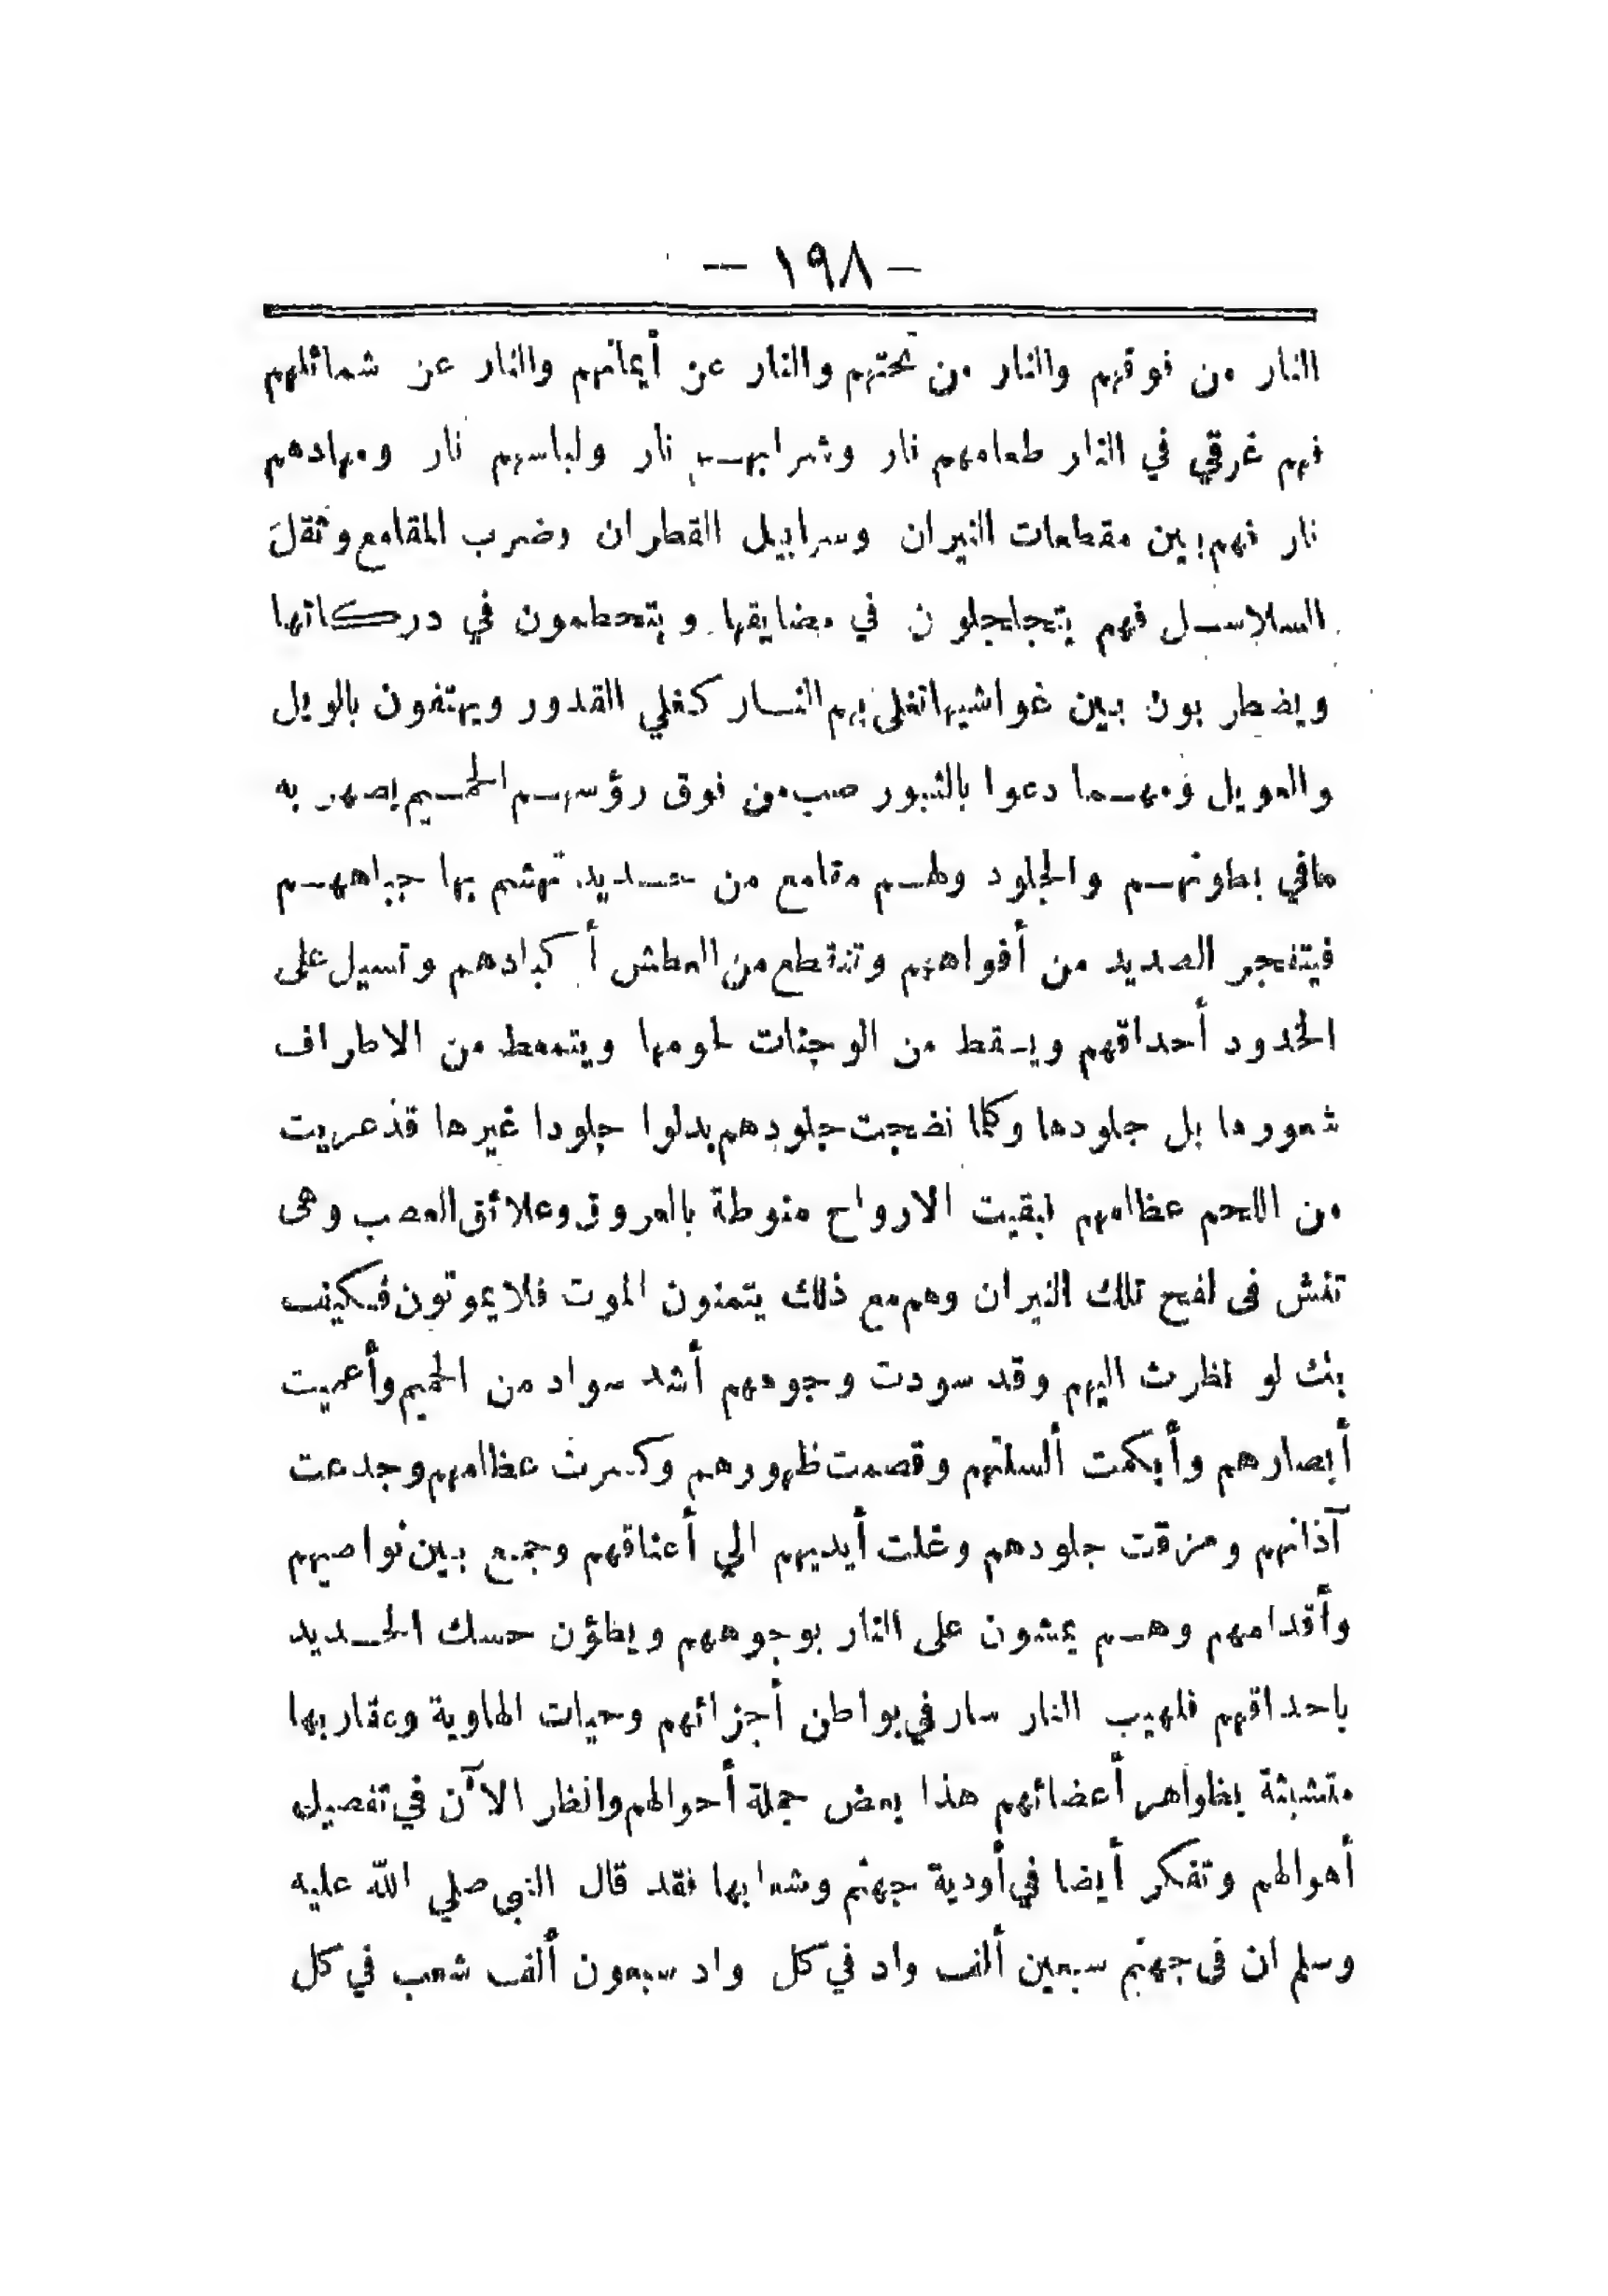 — ١٩٨ —
النار من فوقهم والنار من تحتهم والنار عن أيمانهم والنار عن شمائلهم
فهم غرقي في النار طعامهم نار وشرابهم نار ولباسهم نار ومهادهم
نار فهم بين مقطعات النيران وسرابيل القطران وضرب المقامع وثقل
السلاسل فهم يتجلجلون في مضايقها ويتحطمون في دركاتها
ويضطربون بين غواشيها تغلى بهم النار كغلي القدور ويهتفون بالويل
والعويل ومهما دعوا بالثبور صب من فوق رؤسهم الحميم يصهر به
مافي بطونهم والجلود ولهم مقامع من حديد تهشم بها جباههم
فيتفجر الصديد من أفواههم وتنقطع من العطش أكبادهم وتسيل على
الخدود أحداقهم ويسقط من الوجنات لحومها ويتمعط من الاطراف
شعورها بل جلودها وكلما نضجت جلودهم بدلوا جلودا غيرها قد عريت
من اللحم عظامهم فبقيت الارواح منوطة بالعروق وعلائق العصب وهى
تنش فى لفح تلك النيران وهم مع ذلك يتمنون الموت فلا يموتون فكيف
بك لو نظرت اليهم وقد سودت وجوههم أشد سواد من الحميم وأعميت
أبصارهم وأبكمت ألسنتهم وقصمت ظهورهم وكسرت عظامهم وجدعت
آذانهم ومزقت جلودهم وغلت أيديهم الي أعناقهم وجمع بين نواصيهم
وأقدامهم وهم يمشون على النار بوجوههم ويطؤن حسك الحديد
باحداقهم فلهيب النار سار في بواطن أجزائهم وحيات الهاوية وعقاربها
متشبثة بظواهر أعضائهم هذا بعض جملة أحوالهم وانظر الآن في تفصيل
أهوالهم وتفكر أيضا في أودية جهنم وشعابها فقد قال النبى صلي الله عليه
وسلم ان فى جهنم سبعين ألف واد في كل واد سبعون ألف شعب في كل